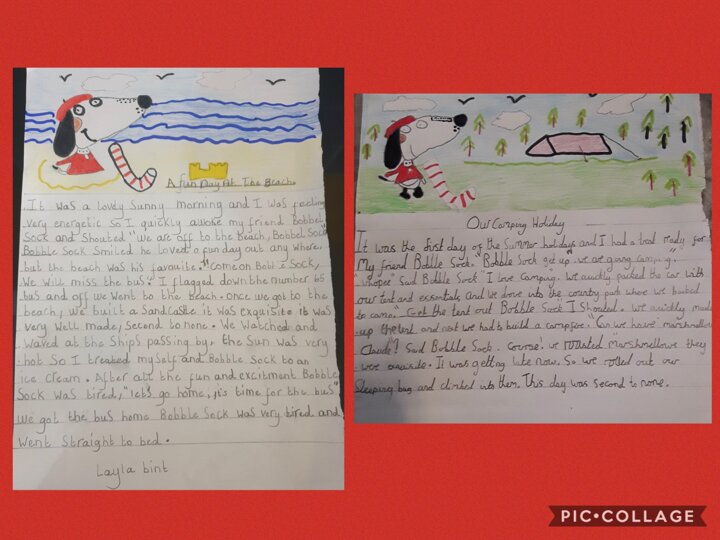 A fun Day At The Beach.
It was a lovely Sunny morning and I was feeling
very energetic so I quickly awoke my friend Bobbel
Sock and Shouted "we are off to the beach, Bobbel Sock"
Bobble Sock Smiled he loved a fun day out any where.
but the beach was his favourite. "come on Bobble Sock,
We will miss the bus." I flagged down the number 65
bus and off we went to the beach. once we got to the
beach, we built a Sandcastle it was exquisite it was
very well made, Second to none. We watched and
waved at the Ships passing by, the Sun was very
hot So I treated myself and Bobble Sock to an
ice cream. After all the fun and excitment Bobble
Sock was tired, "let's go home, it's time for the bus"
We got the bus home Bobble Sock was very tired and
went Straight to bed.
Layla bint
Our Camping Holiday
It was the first day of the Summer holidays and I had a treat ready for
My friend Bobble Sock. "Bobble Sock get up we are going camping."
"whopee" said Bobble Sock "I love camping". We quickly packed the car with
our tent and essentials, and we drove into the country park where we
to camp. "Get the tent out Bobble Sock" I Shouted. We quickly made
up the tent, and next we had to build a campfire. "Can we have marshmallows
Claude"? Said Bobble Sock. Course! We roasted Marshmellows they
were exquisite. It was getting late now. So we rolled out our
Sleeping bag and climbed into them. This day was second to none.
PIC•COLLAGE